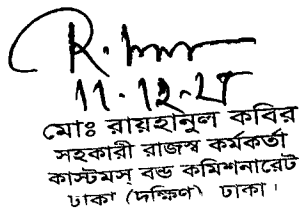 ১১-১২-২৫
মোঃ রায়হানুল কবির
সহকারী রাজস্ব কর্মকর্তা
কাস্টমস্ বন্ড কমিশনারেট
ঢাকা (দক্ষিণ) ঢাকা।